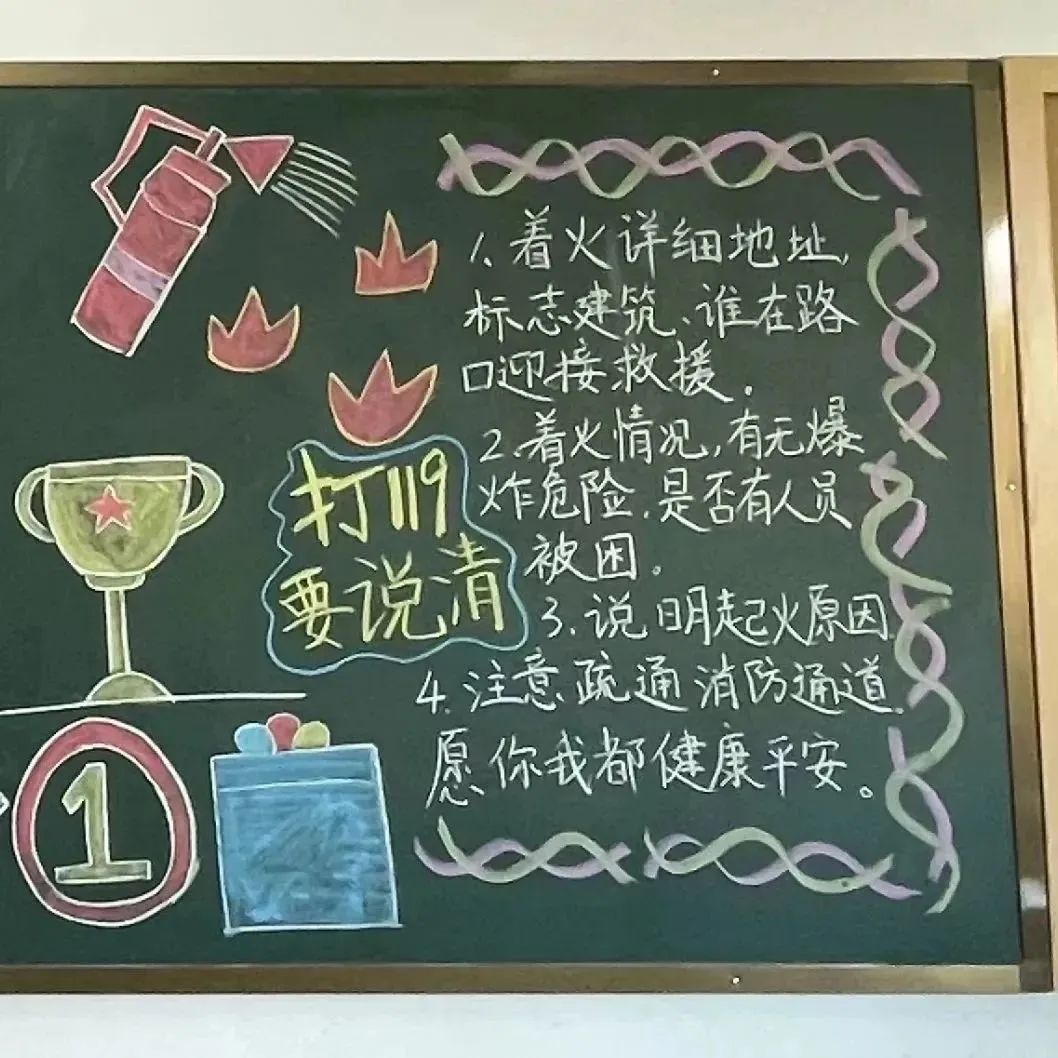 打119
要说清
1、着火详细地址,
标志建筑、谁在路
口迎接救援.
2、着火情况,有无爆
炸危险.是否有人员
被困.
3.说明起火原因.
4.注意疏通消防通道.
愿你我都健康平安。
1